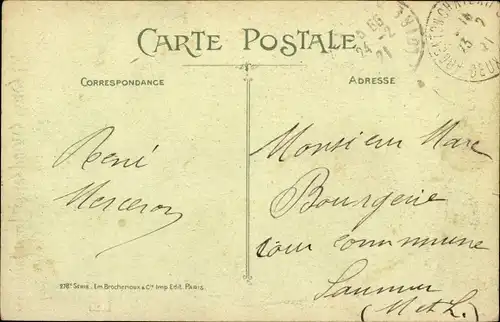 CARTE POSTALE
CORRESPONDANCE
ADRESSE
René
Merceron
Monsieur Marc
Bourgerie
cour commune
Saumur
(M et L.)
278e Série. Em. Brocherioux & Cie Imp. Edit. Paris.